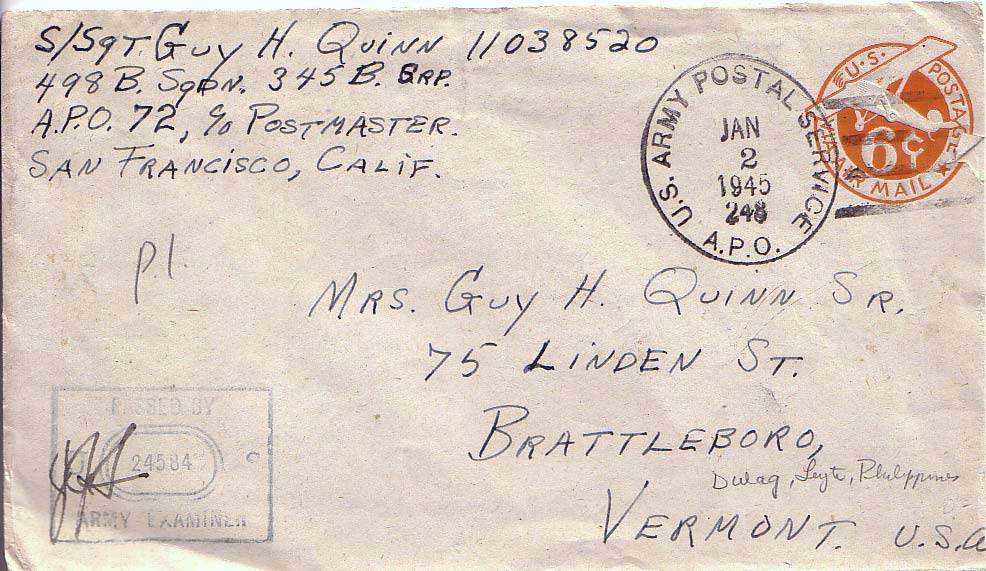 S/Sgt. Guy H. Quinn 11038520
498 B. Sqdn. 345 B. Grp.
A.P.O. 72, c/o Postmaster.
San Francisco, Calif.
U.S. ARMY POSTAL SERVICE
JAN
2
1945
248
A.P.O.
U.S. POSTAGE
6¢
VIA AIR MAIL
P.I.
Mrs. Guy H. Quinn Sr.
75 Linden St.
Brattleboro,
Dulag, Leyte, Philippines
Vermont. U.S.A
PASSED BY
24584
ARMY EXAMINER